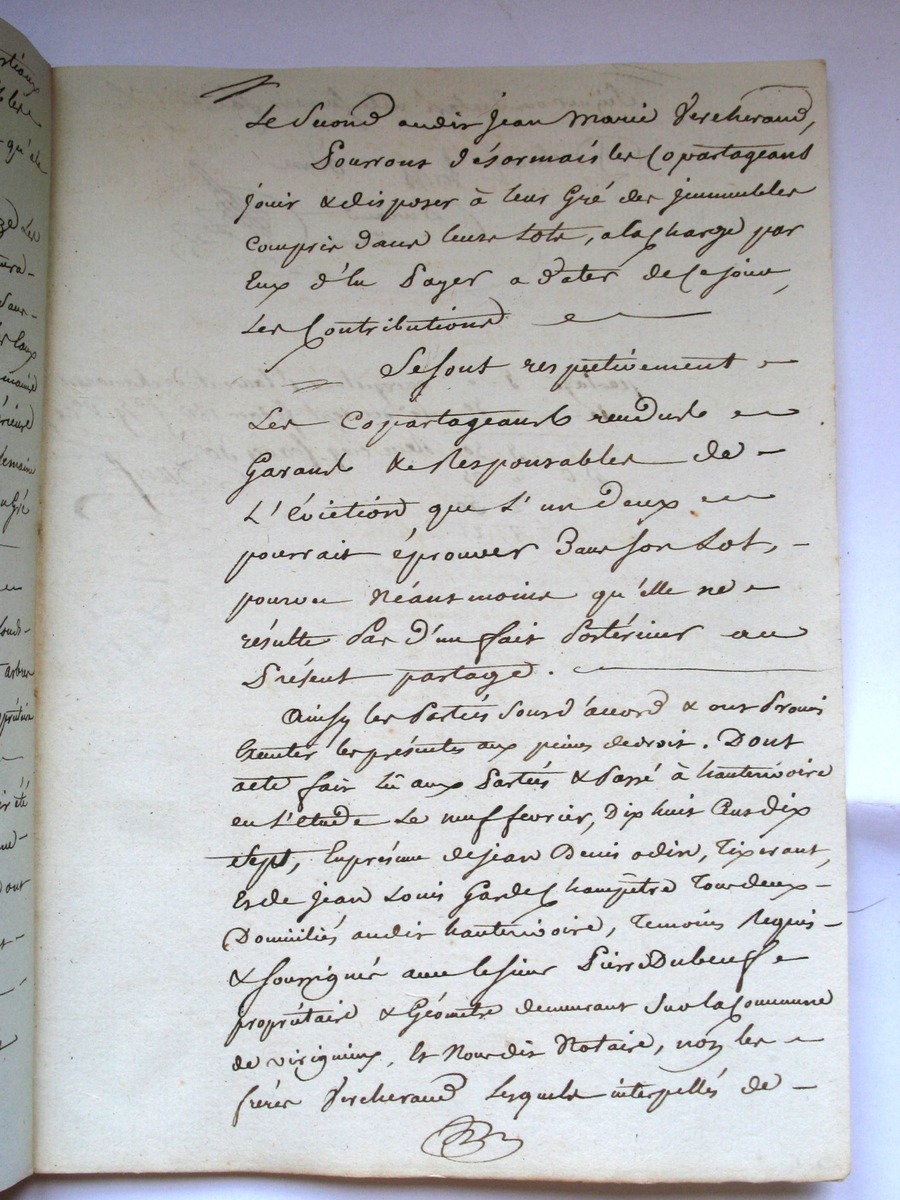 Le Second audit Jean Marie Vercherand,
Pourront désormais les Copartageants
jouir & disposer à leur Gré des immeubles
Compris dans leurs Lots, a la Charge par
Eux d'en Payer a dater de Ce jour,
Les Contributions
Se sont respectivement
Les Copartageants rendus
Garants & Responsables de
L'éviction que L'un Deux
pourrait éprouver Dans son Lot,
pourvu Néantmoins qu'elle ne
résulte Pas d'un fait Postérieur au
Présent partage.
Ainsy les Parties sont d'accord & ont Promis
Exécuter les présentes aux peines de droit. Dont
acte fait Lû aux Parties & Passé à hauterivoire
en L'étude Le neuf fevrier, Dix huit Cent dix
Sept, En présence de jean Denis odin, Tixerant,
Et de jean Louis Garde Champêtre Tous deux
Domiciliés audit hauterivoire, Temoins Requis
& soussignés avec le sieur Pierre Dubeuf
propriétaire & Géomètre demeurant Sur la Commune
de virigneux, Et Nous dit Notaire, non les
frères Vercherand Lesquels interpellés de